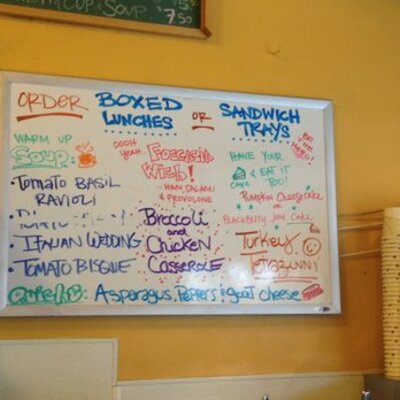 CUP OF SOUP $5
$7.50
ORDER BOXED LUNCHES OR SANDWICH TRAYS
BE THE HERO!
WARM UP
Soup:
• Tomato Basil
Ravioli
• Italian Wedding
• Tomato Bisque
OOOH
yeah
Foccacia
Wich!
HAM, SALAMI
& PROVOLONE
Broccoli
and
Chicken
Casserole
HAVE YOUR
CAKE & EAT IT
TOO!
Pumpkin Cheesecake
or
Blackberry Jam Cake
Turkey
Tetrazzini
Quiche: Asparagus, Peppers & goat cheese